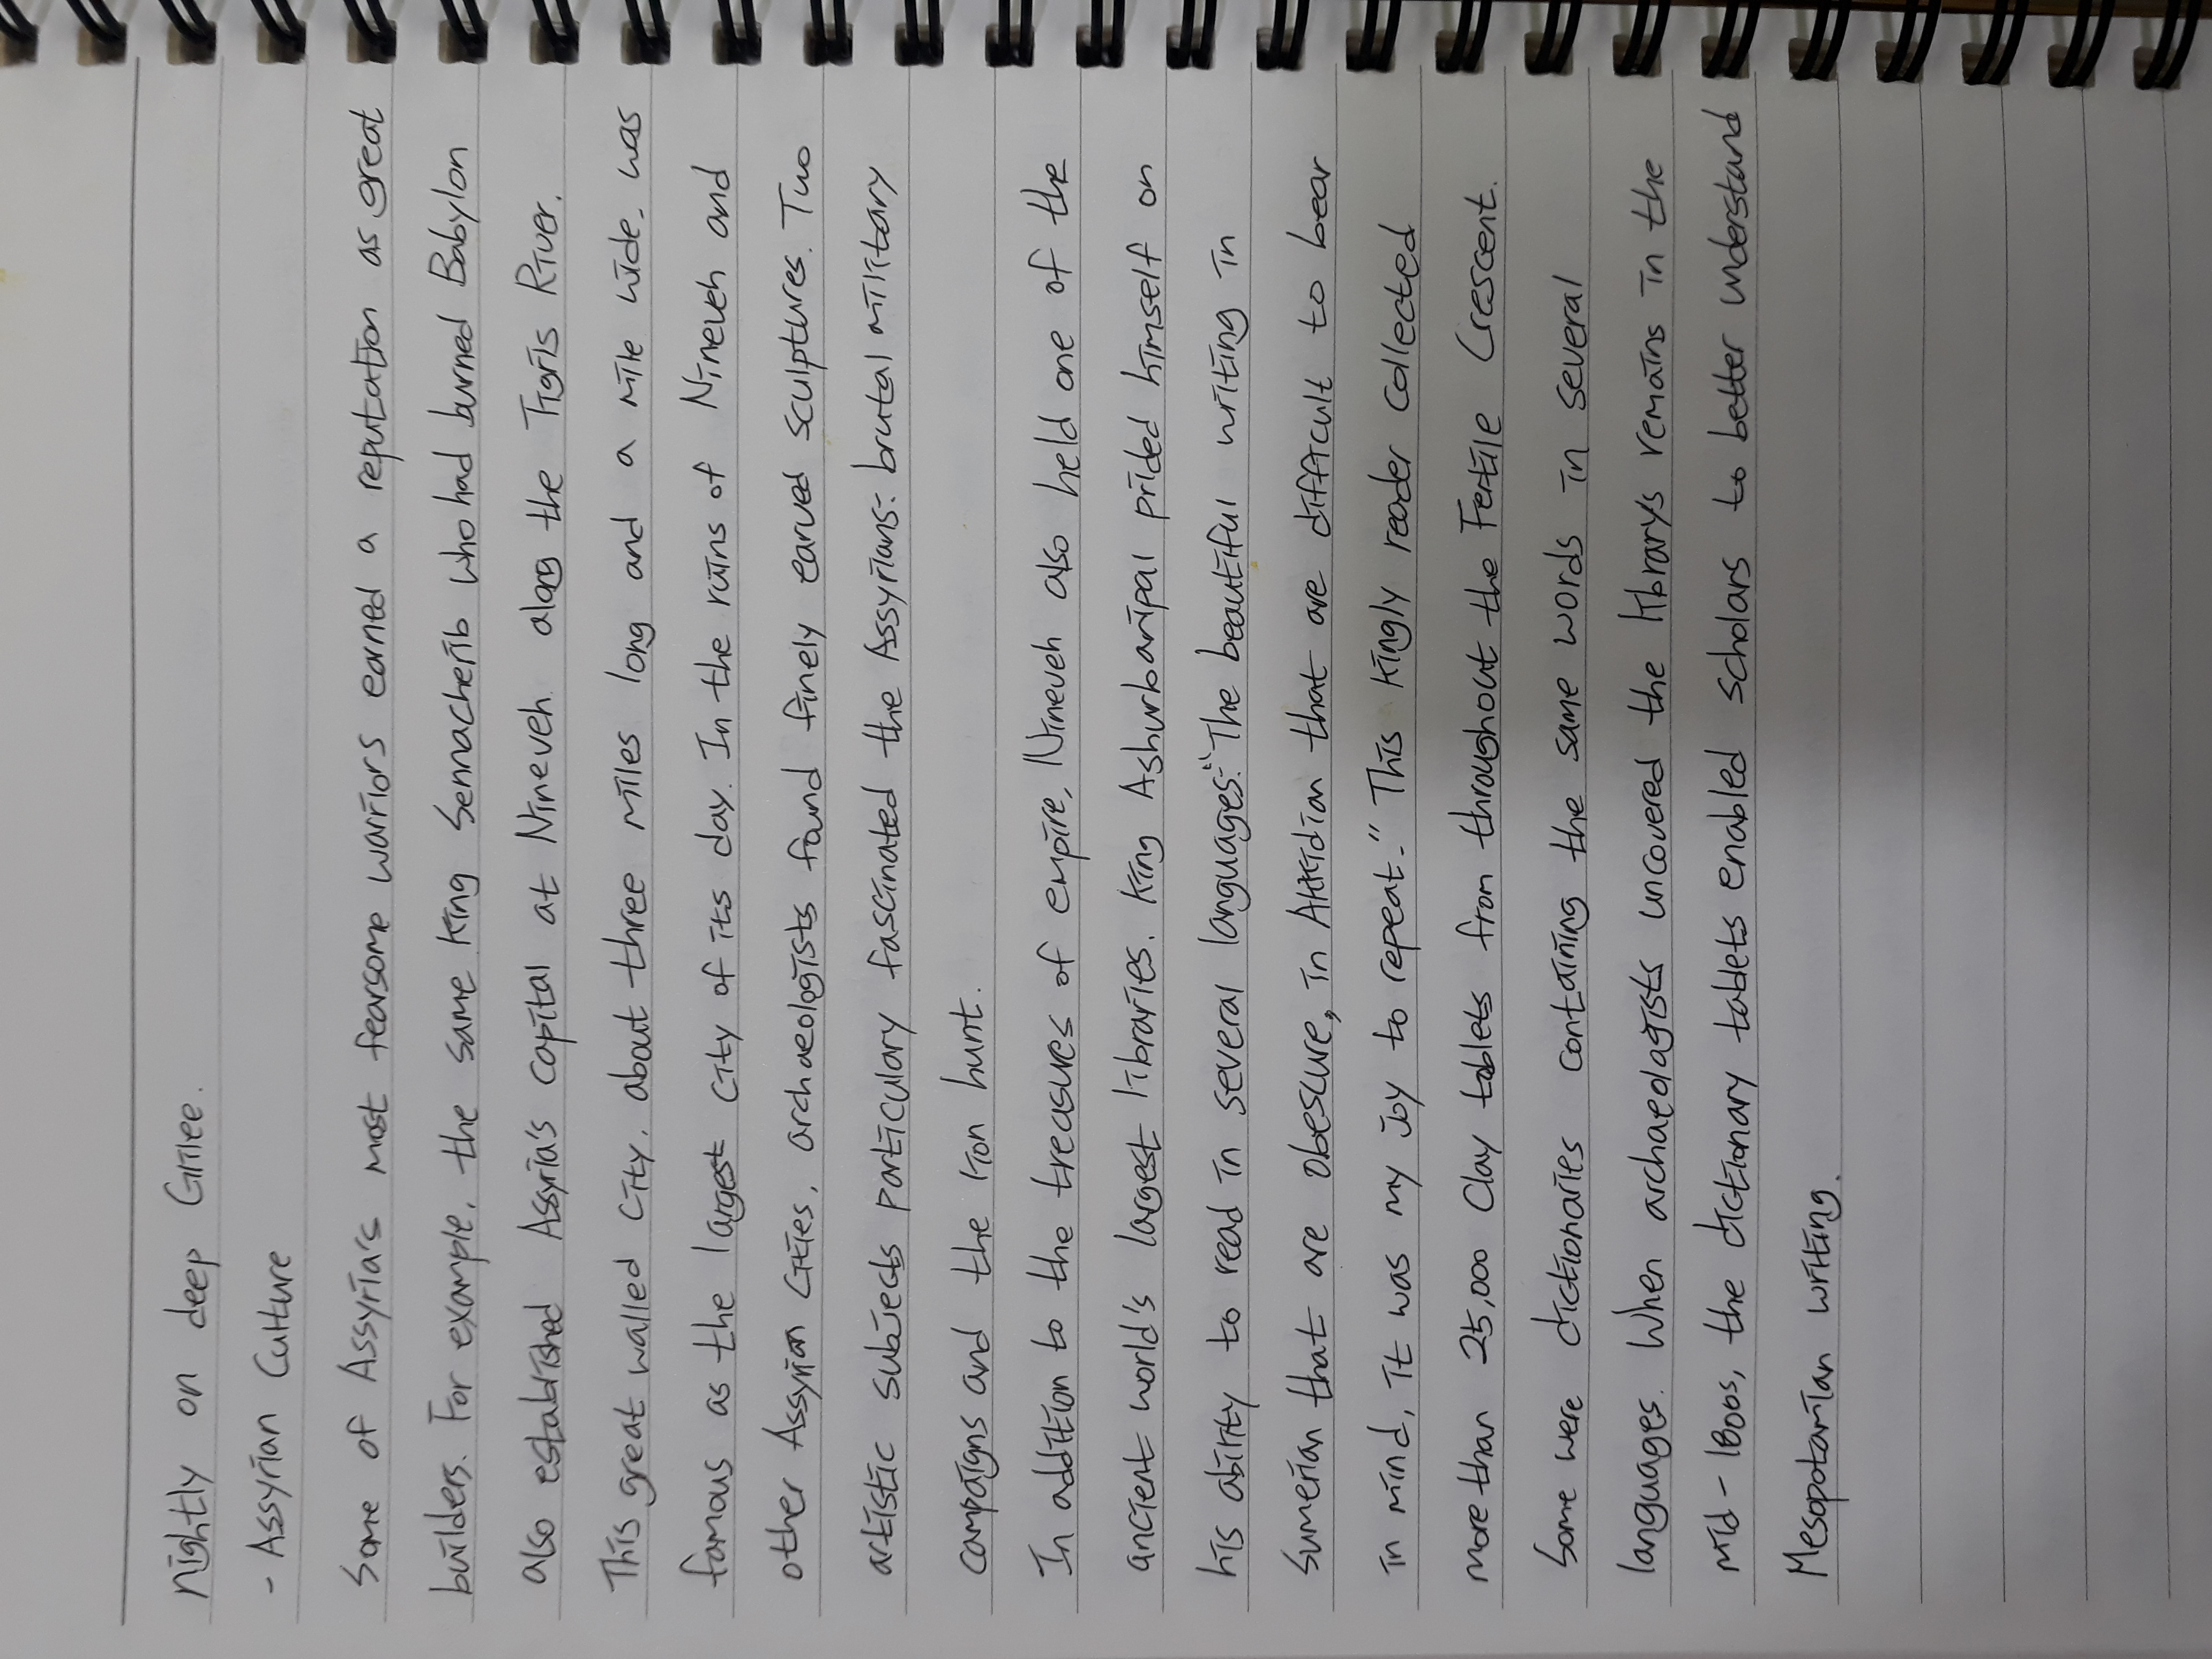 nightly on deep Grilee.
- Assyrian Culture
Some of Assyria's most fearsome warriors earned a reputation as great
builders. For example, the same king Sennacherib who had burned Babylon
also established Assyria's capital at Nineveh along the Tigris River.
This great walled city, about three miles long and a mile wide, was
famous as the largest city of its day. In the ruins of Nineveh and
other Assyrian cities, archaeologists found finely carved sculptures. Two
artistic subjects particulary fascinated the Assyrians: brutal military
campaigns and the lion hunt.
In addition to the treasures of empire, Nineveh also held one of the
ancient world's largest libraries. King Ashurbanipal prided himself on
his ability to read in several languages: "The beautiful writing in
Sumerian that are obescure, in Akkidian that are difficult to bear
in mind, it was my joy to repeat." This kingly reader collected
more than 25,000 clay tablets from throughout the Fertile Crescent.
Some were dictionaries containing the same words in several
languages. When archaeologists uncovered the library's remains in the
mid-1800s, the dictionary tablets enabled scholars to better understand
Mesopotamian writing.